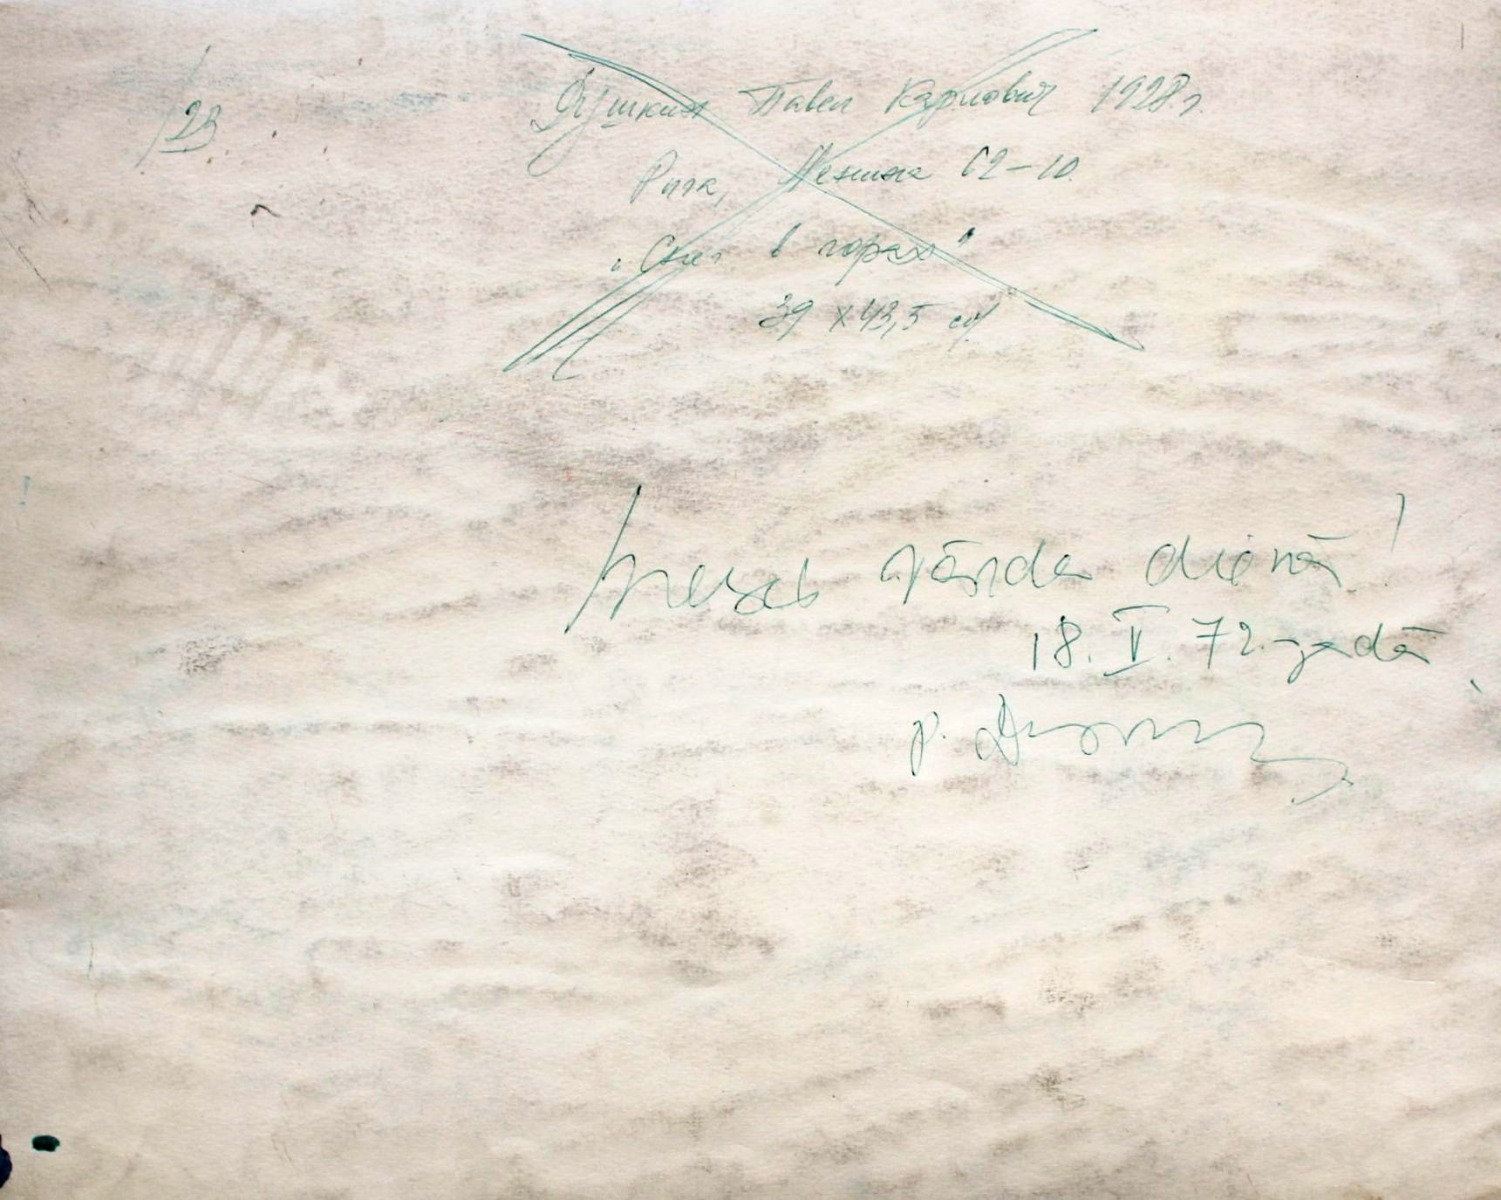 23
Душкин Павел Карлович 1928г.
Рига, Ленина 62-10.
"Снег в горах"
39 x 43,5 см
vārda dienā!
18. V. 72. gadā
P.